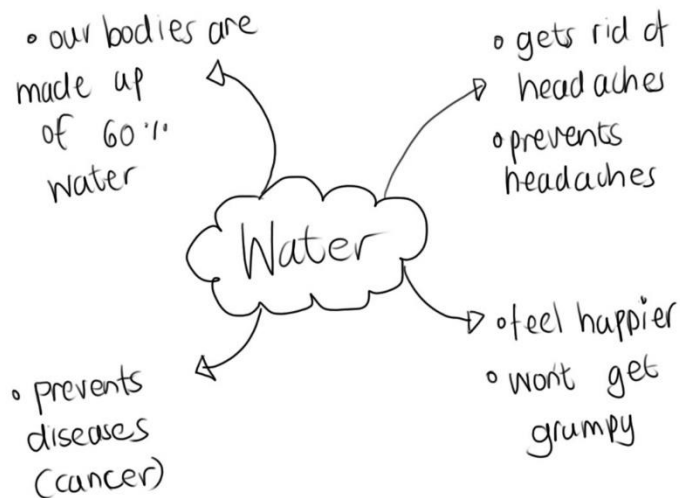 • our bodies are
made up
of 60%
water
• gets rid of
headaches
• prevents
headaches
Water
• feel happier
• won't get
grumpy
• prevents
diseases
(cancer)